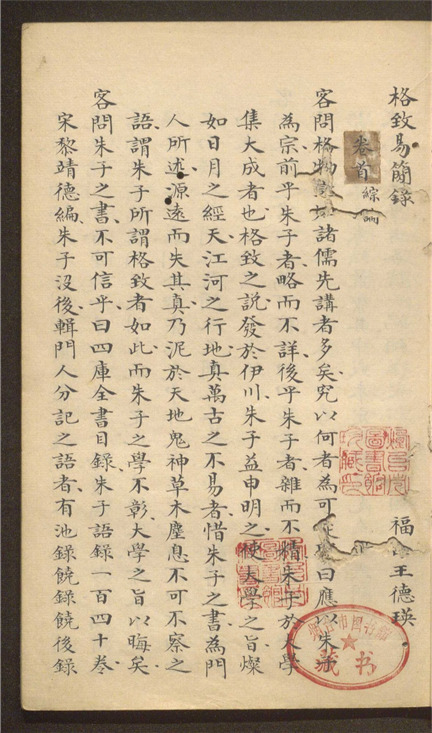 格致易簡錄
福 王德瑛
卷首 綜論
客問格物 諸儒先講者多矣究以何者為可 曰應以朱子
為宗前乎朱子者略而不詳後乎朱子者雜而不精朱子於大學
集大成者也格致之說發於伊川朱子益申明之使大學之旨燦
如日月之經天江河之行地真萬古之不易者惜朱子之書為門
人所述源遠而失其真乃泥於天地鬼神草木塵息不可不察之
語謂朱子所謂格致者如此而朱子之學不彰大學之旨以晦矣
客問朱子之書不可信乎曰四庫全書目錄朱子語錄一百四十卷
宋黎靖德編朱子沒後輯門人分記之語者有池錄饒錄饒後錄
圖書館
藏书